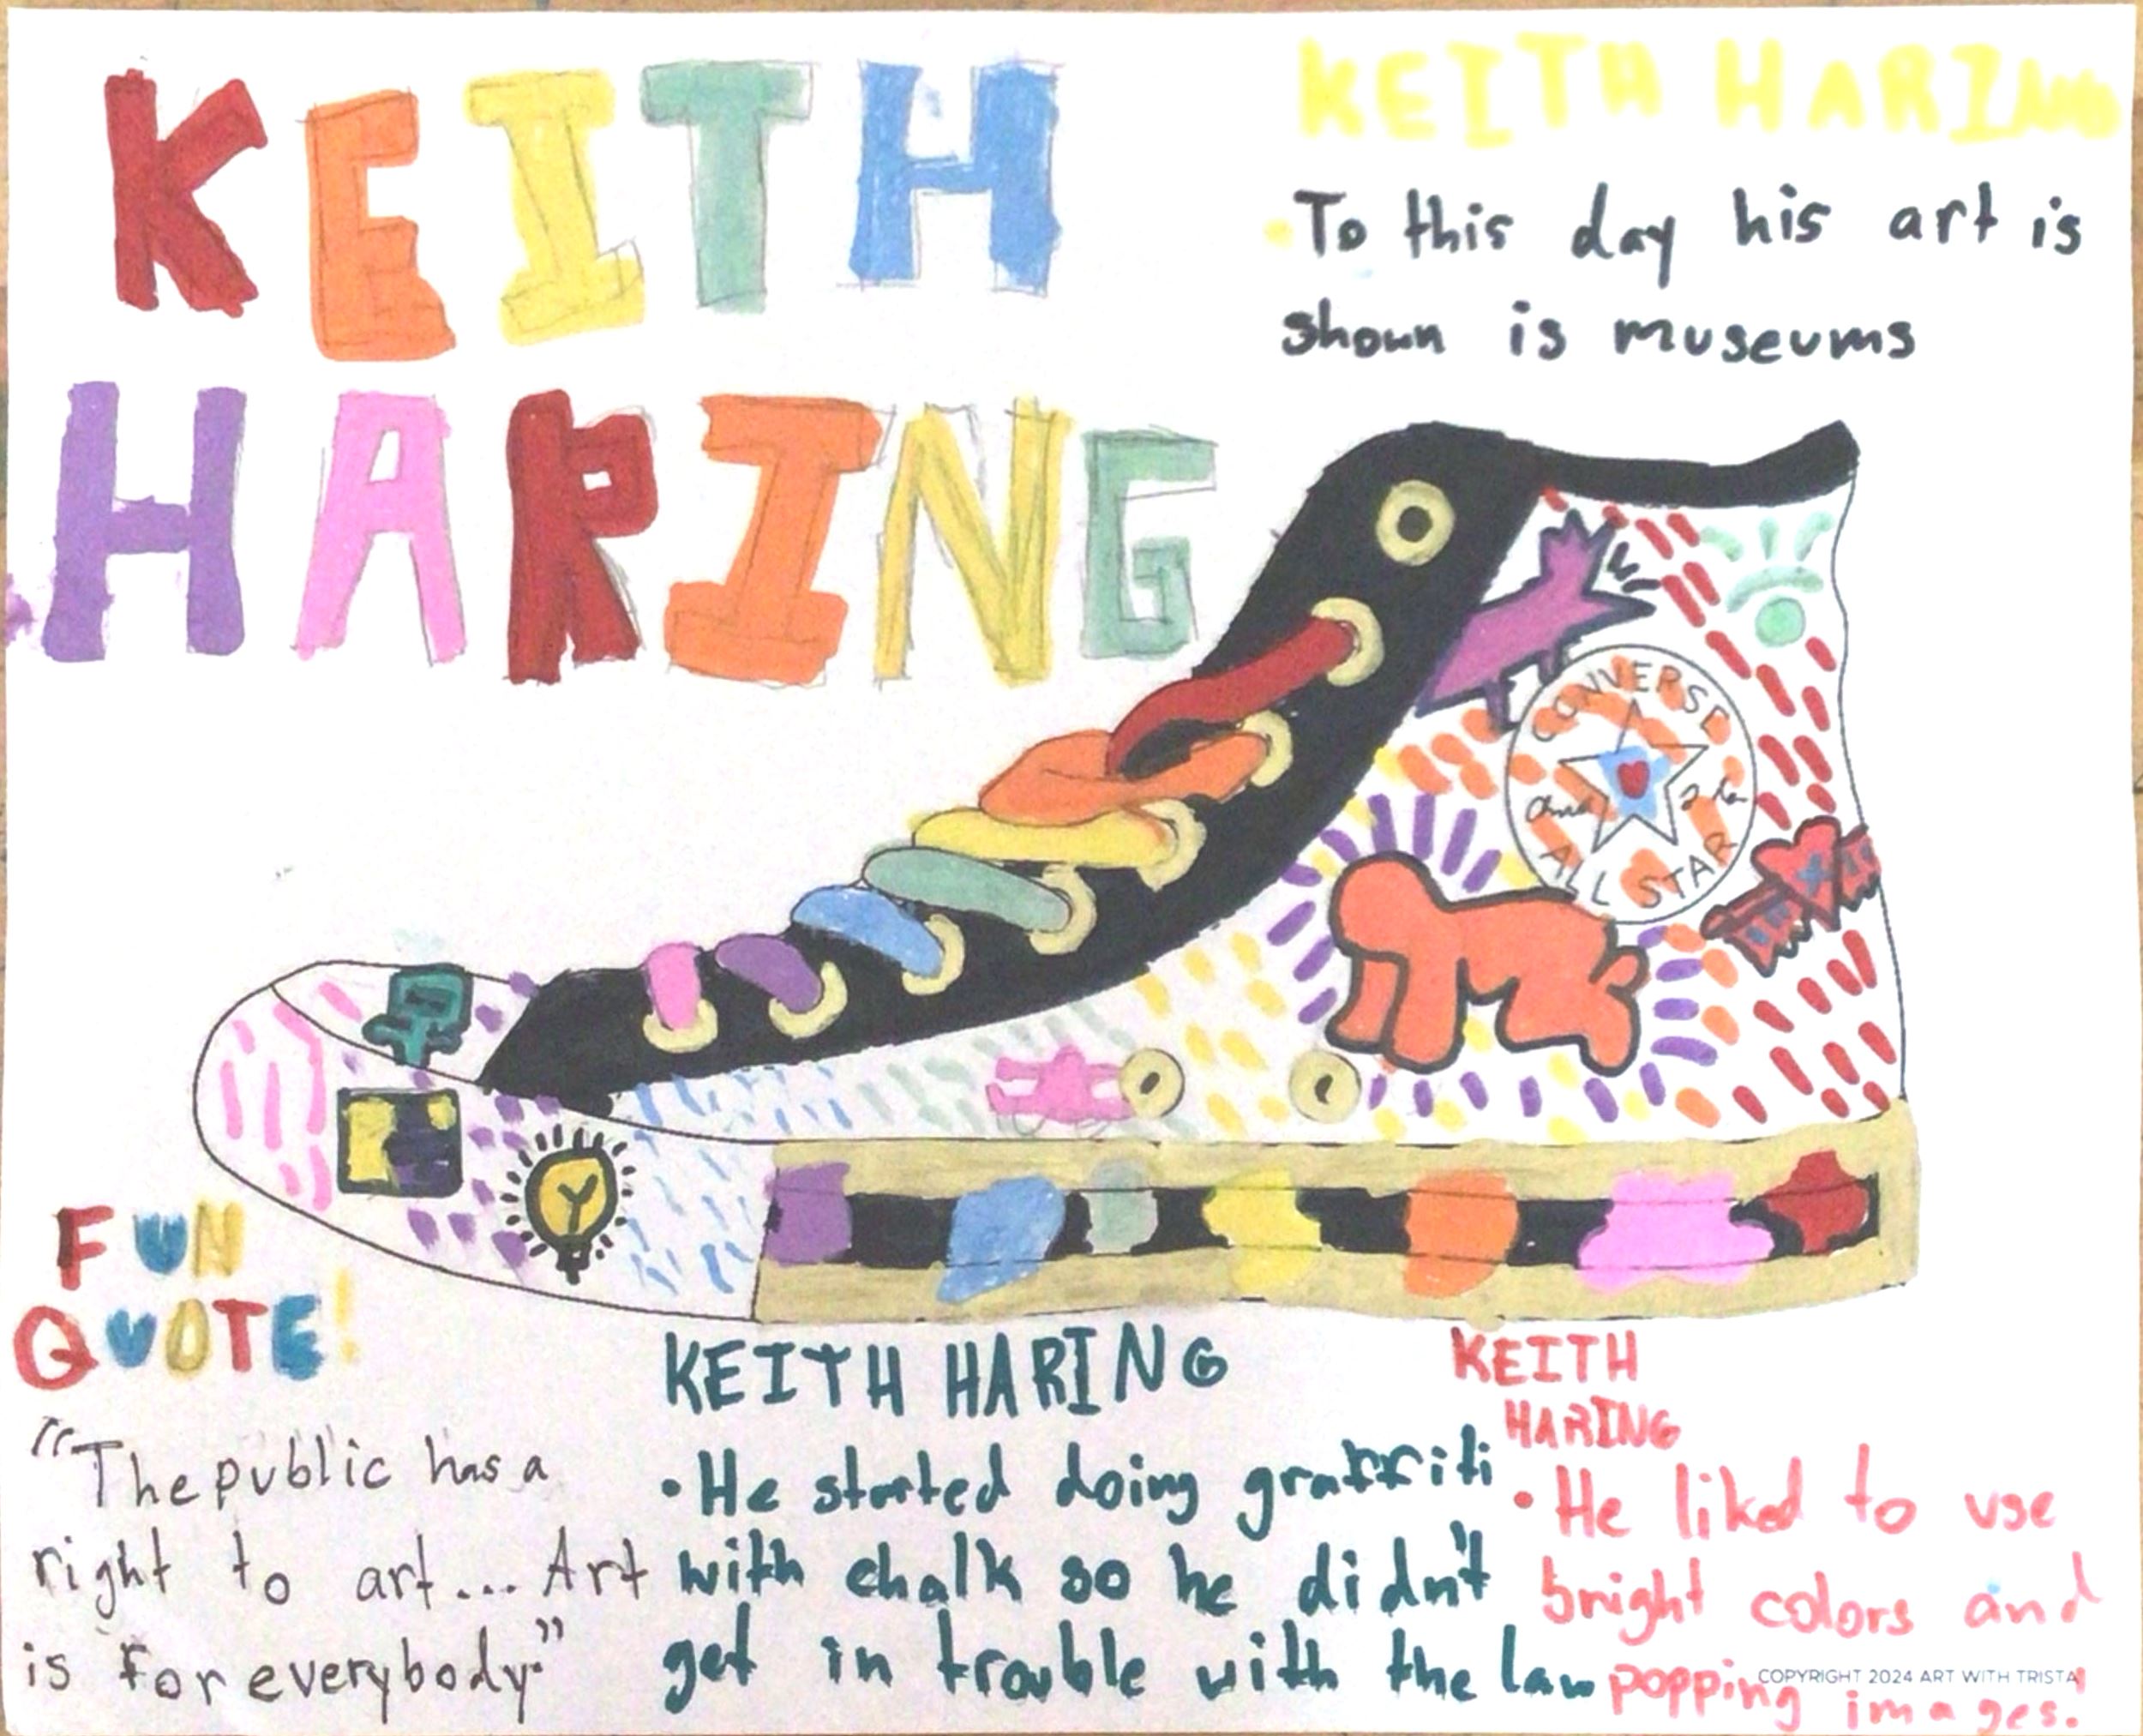 KEITH
HARING
KEITH HARING
• To this day his art is
shown is museums
CONVERSE
ALL STAR
FUN
QUOTE!
"The public has a
right to art... Art
is for everybody."
KEITH HARING
• He started doing graffiti
with chalk so he didn't
get in trouble with the law
KEITH
HARING
• He liked to use
bright colors and
popping images!
COPYRIGHT 2024 ART WITH TRISTA